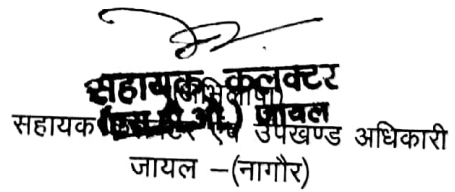 सहायक कलक्टर
(एस.डी.ओ.) जायल
सहायक कलेक्टर एवं उपखण्ड अधिकारी
जायल –(नागौर)